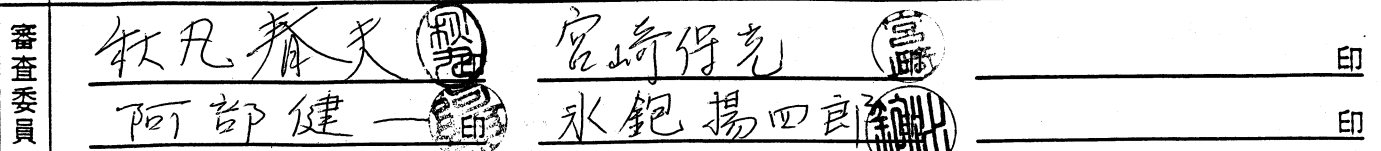 審査委員
秋丸春夫 印 宮崎保光 宮崎 印
阿部健一 印 氷鉋揚四郎 印